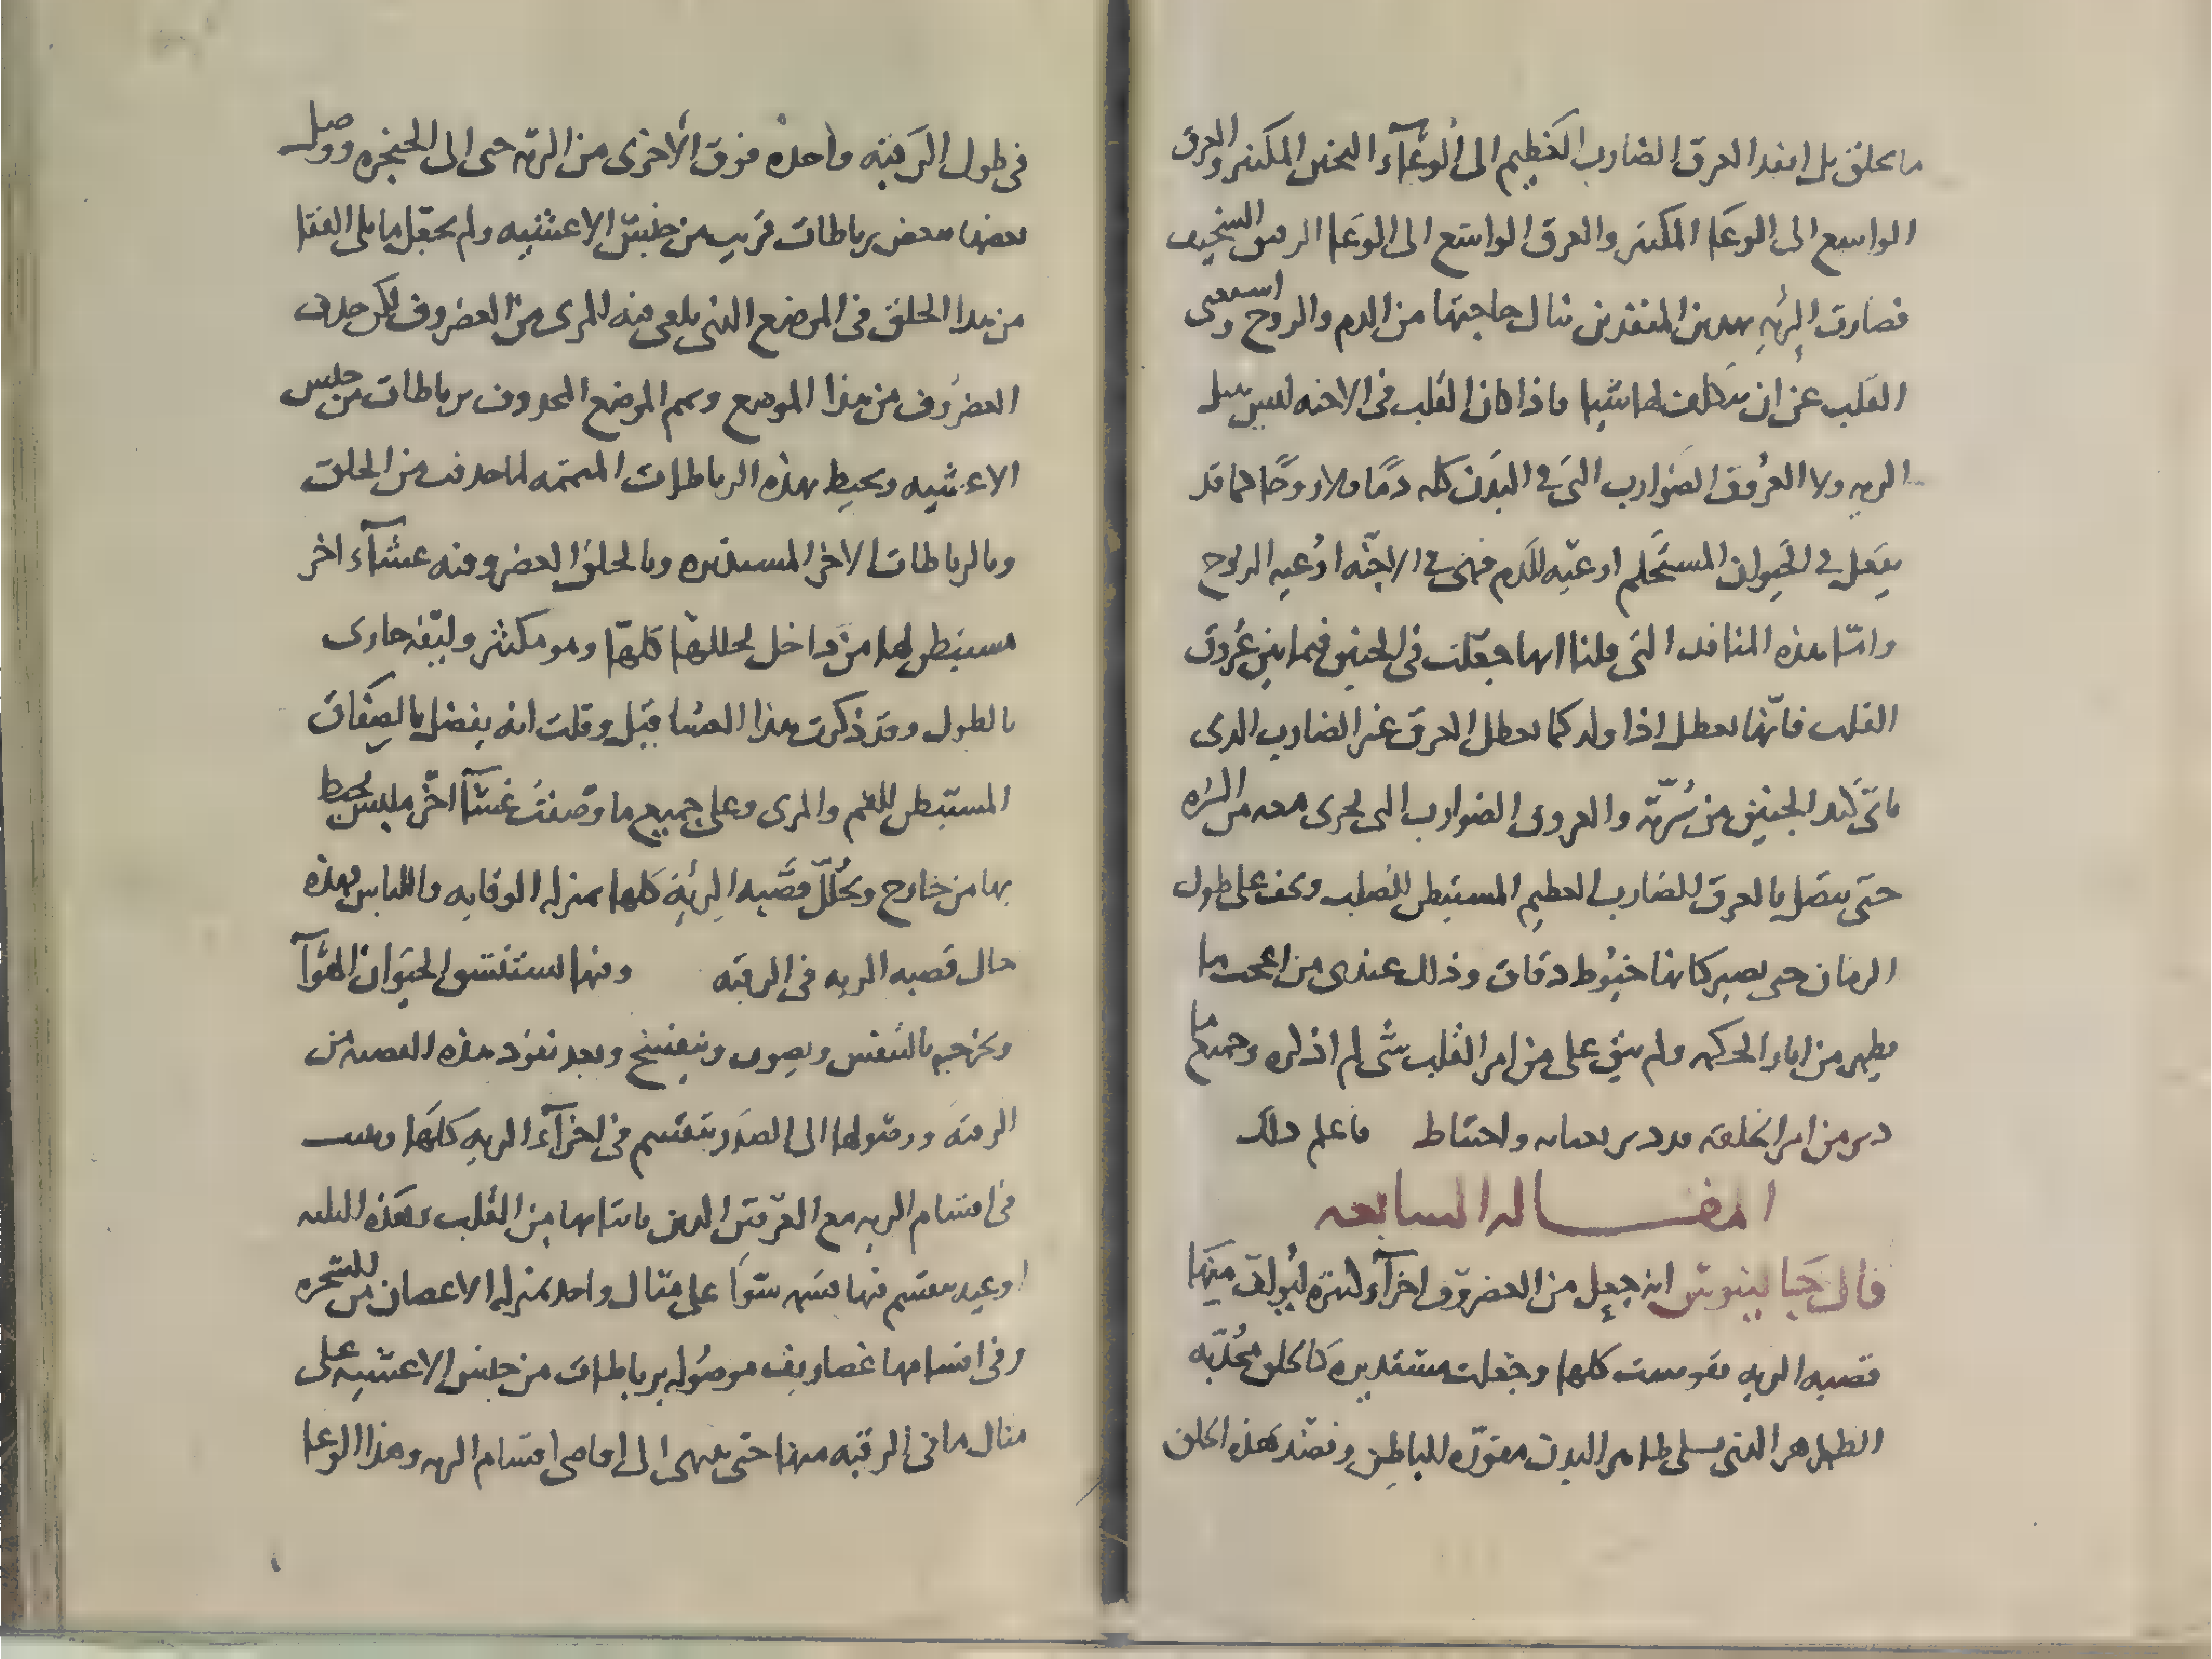 ما يخلق بل انفد العرق الضارب العظيم الى الوعآء التخين المكتنز والعرق
الواسع الى الوعا المكتنز والعرق الواسع الى الوعا الرقيق السخيف
فصارت الرئه بهدين المنفدين تنال حاجتها من الدم والروح واستعنى
القلب عن ان يتكلف لها شيا فاذا كان القلب فى الاجنه ليس ينيل
الريه ولا العروق الضوارب التى في البدن كله دمًا ولا روحًا كما قد
يفعل في الحيوان المستحكم اوعيه للدم فهى في الاجنّه اوعيه الروح
وامّا هذه المنافد التى قلنا انها جعلت فى الجنين فيما بين عروق
القلب فانّها تعطل اذا ولد كما تعطل العرق غير الضارب الدى
ياتى كبد الجنين من سُرّته والعروق الضوارب التى تجرى معه من السره
حتى يتصل بالعرق الضارب العظيم المستبطن للصلب وتجف على طول
الزمان حتى يصير كانها خيوط دقاق وذلك عندى من اعجب ما
يظهر من اثار الحكمه ولم يبق على من امر القلب شى لم اذكره وجميع ما
دبر من امر الخلقه قد دبر بعنايه واحتياط فاعلم ذلك
المقاله السابعه
قال جالينوس انه جعل من الغضروف اجزآء كثيره ليولف منها
قصبه الريه تقوست كلها وجعلت مستديره كالحلق محدّبه
الظاهر الذى يلى ظاهر البدن مقوّره للباطن ونضد هذه الحلق
فى طول الرقبه واحده فوق الأخرى من الريه حتى الى الحنجره ووصل
بعضها ببعض برباطات قريبه من جنس الاغشيه ولم يجعل ما يلى القفا
من هدا الحلق فى الموضع الذى يلقى منه المرى من الغضروف لكن حذف
الغضروف من هذا الموضع وتمم الموضع المحذوف برباطات من جنس
الاغشيه ويحيط بهذه الرباطات المتممه لما حدف من الحلق
وبالرباطات الاخر المستديره وبالحلق الغضروفيه غشآء اخر
مستبطن لها من داخل يجللها كلها وهو مكتنز وليفه جارى
بالطول وقد ذكرت هذا الغشا قبل وقلت انه يتصل بالصفاق
المستبطن للفم والمرى وعلى جميع ما وصفت غشآ اخر ملبس يحيط
بها من خارج ويجلّل قصبه الرئه كلها بمنزله الوقايه واللباس وهذه
حال قصبه الريه فى الرقبه ومنها يستنشق الحيوان الهوآ
ويخرجه بالتنفس ويصوت وينفخ وبعد نفوذ هذه القصبه من
الرقبه ووصولها الى الصدر تنقسم فى اجزآء الريه كلها وتنبث
فى اقسام الريه مع العرقين الدين ياتيانها من القلب وهذه الثلثه
اوعيه تنقسم فيها قسمه سوآ على مثال واحد بمنزله الاغصان من الشجره
وفى اقسامها غضاريف موصوله برباطات من جنس الاغشيه على
مثال ما فى الرقبه منها حتى ينتهى الى اقاصى اقسام الريه وهذا الوعا